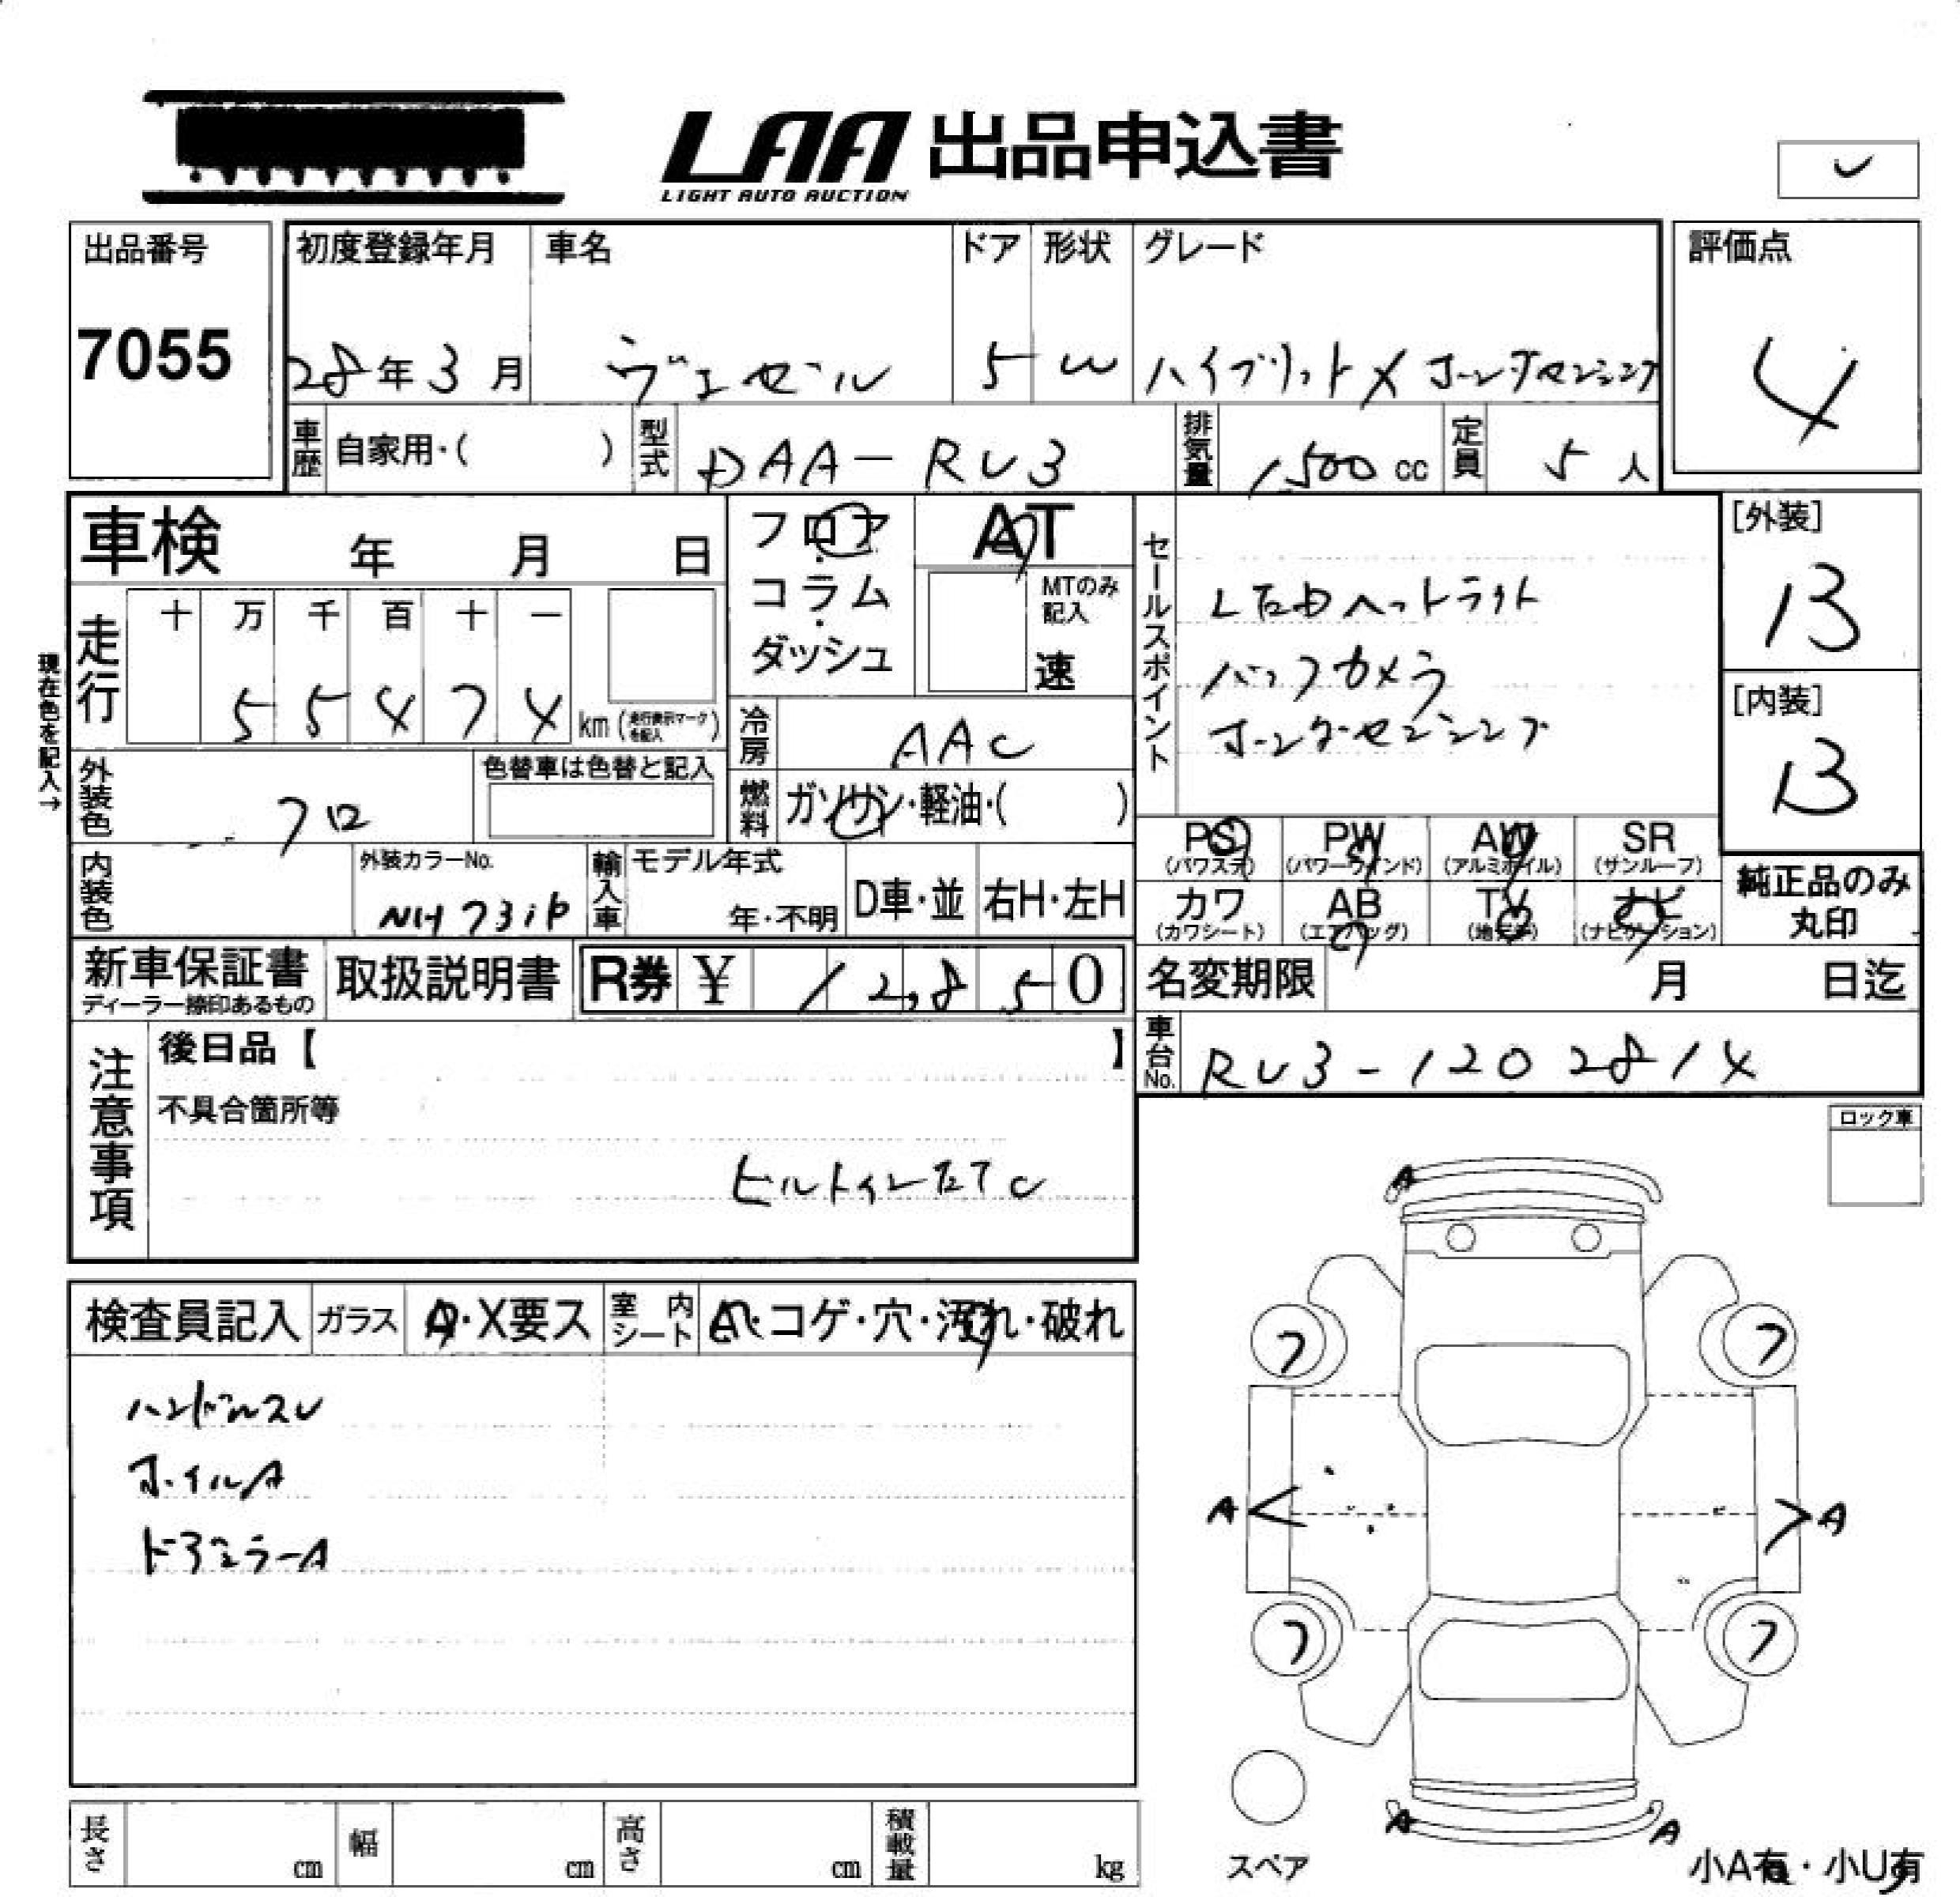 LAA 出品申込書
LIGHT AUTO AUCTION
出品番号
7055
初度登録年月
28年3月
車名
ヴェゼル
ドア
5
形状
W
グレード
ハイブリットX ホンダセンシング
評価点
4
車歴 自家用・( )
型式 DAA-RU3
排気量 1,500 cc
定員 5人
車検 年 月 日
フロア・コラム・ダッシュ
AT
MTのみ記入
速
走行
十 万 千 百 十 一
5 5 4 7 4 km (走行表示マークを記入)
現在色を記入→
外装色 クロ
色替車は色替と記入
冷房 AAC
燃料 ガソリン・軽油・( )
セールスポイント
LEDヘットライト
バックカメラ
ホンダセンシング
[外装]
B
[内装]
B
PS (パワステ) PW (パワーウインド) AW (アルミホイル) SR (サンルーフ)
カワ (カワシート) AB (エアバッグ) TV (地デジ) ナビ (ナビゲーション)
純正品のみ丸印
内装色
外装カラーNo.
NH731P
輸入車 モデル年式
年・不明
D車・並 右H・左H
新車保証書
ディーラー捺印あるもの
取扱説明書
R券 ¥ 12,850
名変期限 月 日迄
車台No. RU3-1202814
注意事項
後日品【 】
不具合箇所等
ビルトインETC
ロック車
検査員記入 ガラス A・X要ス 室内シート A・コゲ・穴・汚れ・破れ
ハンドルスレ
ホイルA
ドアミラーA
A
フ フ
A A
フ フ
A A
スペア
小A有・小U有
長さ cm 幅 cm 高さ cm 積載量 kg